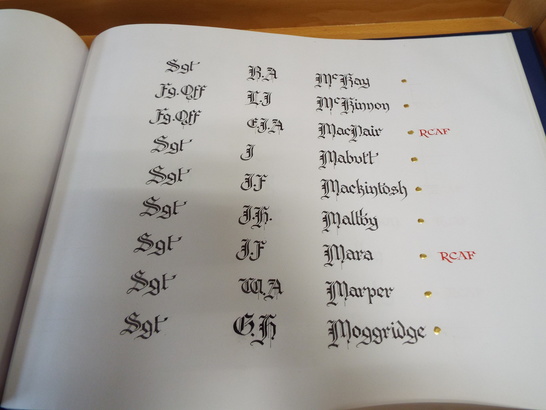 Sgt B.A McKay
Fg.Off L.J McKinnon
Fg.Off E.J.A MacNair RCAF
Sgt J Mabutt
Sgt J.F Mackintosh
Sgt J.H. Maltby
Sgt J.F Mara RCAF
Sgt W.A Marper
Sgt G.H Moggridge